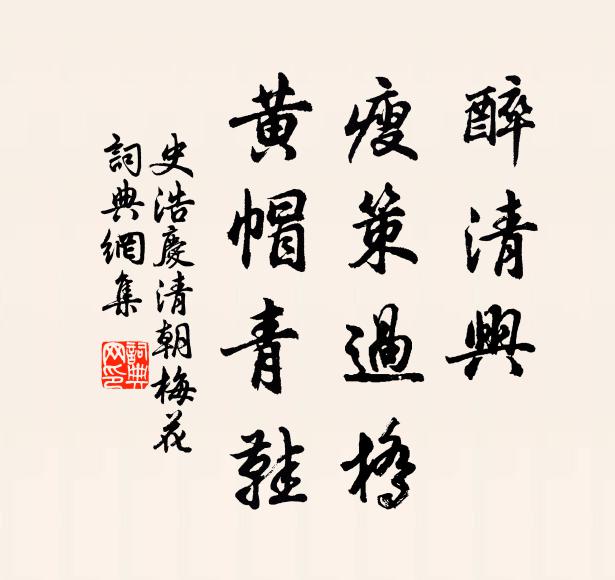 醉清興
瘦策過橋
黃帽青鞋
史浩慶清朝梅花
詞典網集
詞典网印